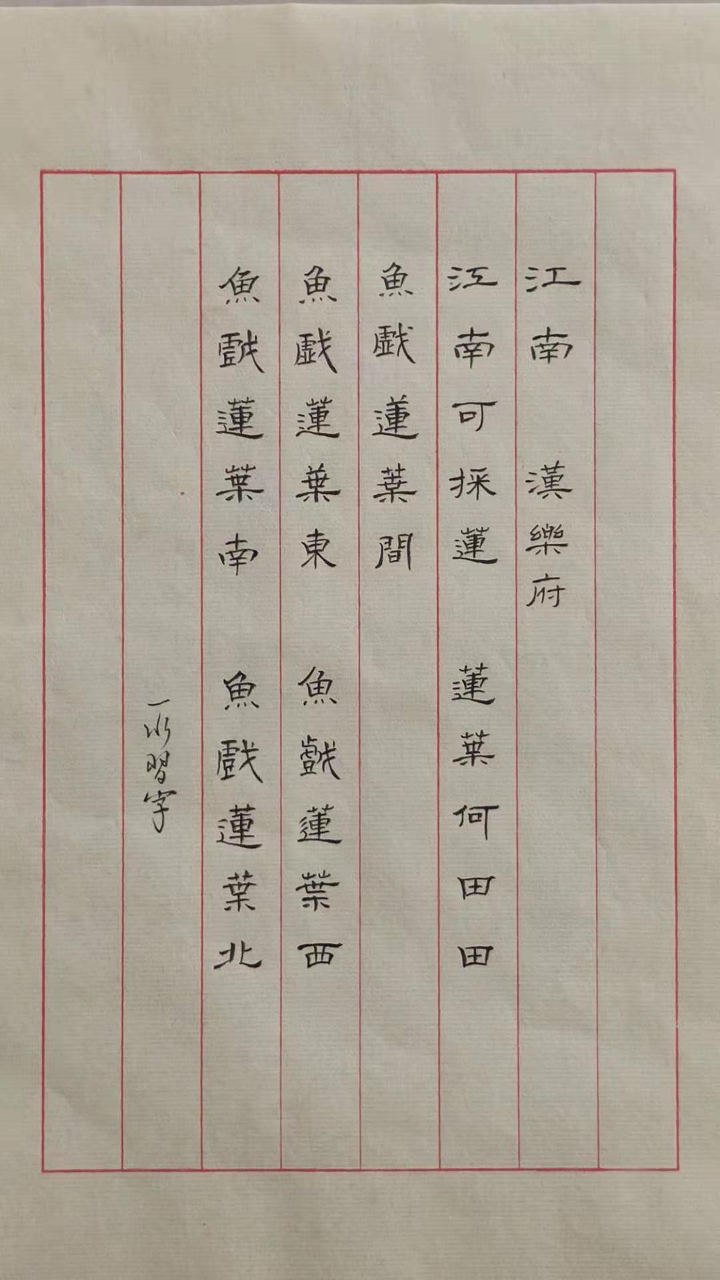 江南 漢樂府
江南可採蓮 蓮葉何田田
魚戲蓮葉間
魚戲蓮葉東 魚戲蓮葉西
魚戲蓮葉南 魚戲蓮葉北
一水習字